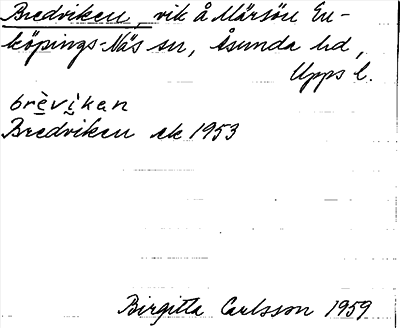 Bredviken, vik å Märsön En-
köpings-Näs sn, Åsunda hd,
Upps l.
brèvikan
Bredviken ek 1953
Birgitta Carlsson 1959